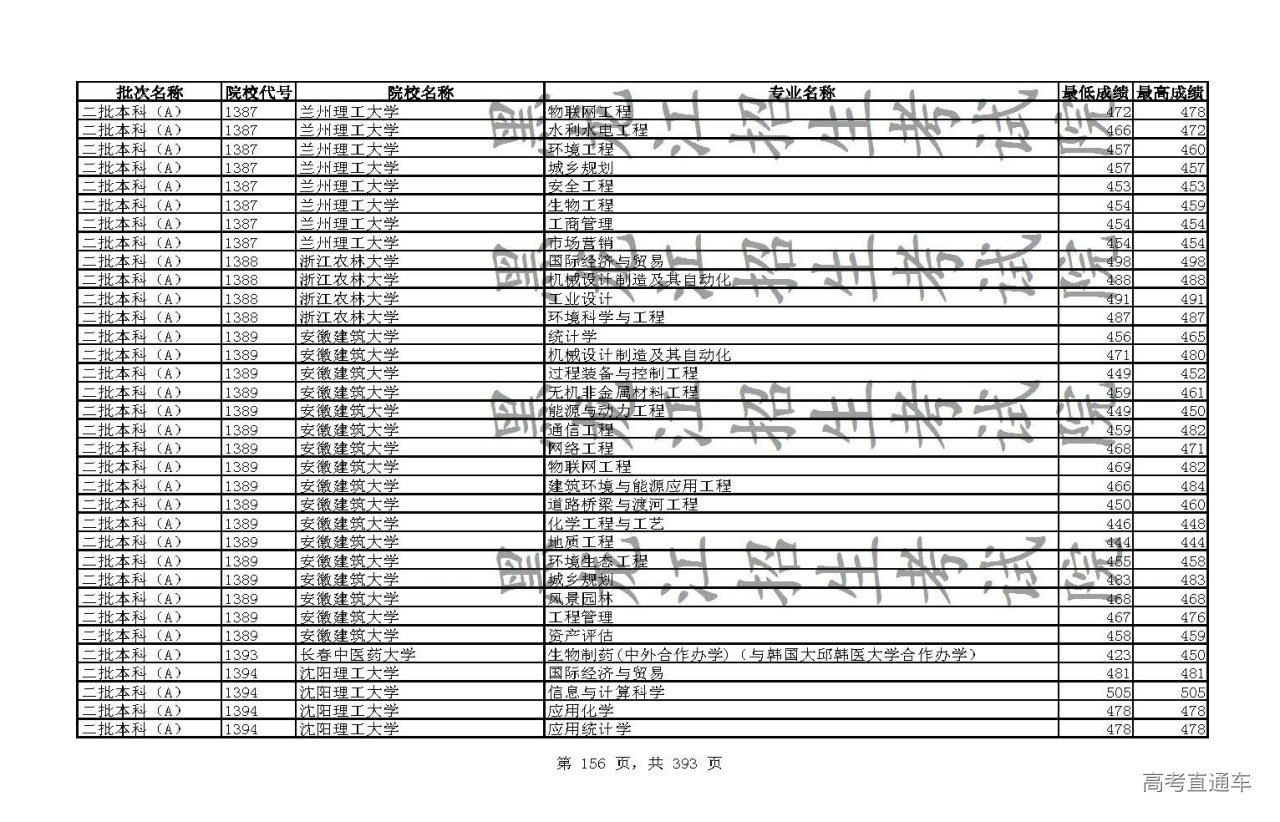 批次名称 院校代号 院校名称 专业名称 最低成绩 最高成绩
二批本科（A） 1387 兰州理工大学 物联网工程 472 478
二批本科（A） 1387 兰州理工大学 水利水电工程 466 472
二批本科（A） 1387 兰州理工大学 环境工程 457 460
二批本科（A） 1387 兰州理工大学 城乡规划 457 457
二批本科（A） 1387 兰州理工大学 安全工程 453 453
二批本科（A） 1387 兰州理工大学 生物工程 454 459
二批本科（A） 1387 兰州理工大学 工商管理 454 454
二批本科（A） 1387 兰州理工大学 市场营销 454 454
二批本科（A） 1388 浙江农林大学 国际经济与贸易 498 498
二批本科（A） 1388 浙江农林大学 机械设计制造及其自动化 488 488
二批本科（A） 1388 浙江农林大学 工业设计 491 491
二批本科（A） 1388 浙江农林大学 环境科学与工程 487 487
二批本科（A） 1389 安徽建筑大学 统计学 456 465
二批本科（A） 1389 安徽建筑大学 机械设计制造及其自动化 471 480
二批本科（A） 1389 安徽建筑大学 过程装备与控制工程 449 452
二批本科（A） 1389 安徽建筑大学 无机非金属材料工程 459 461
二批本科（A） 1389 安徽建筑大学 能源与动力工程 449 450
二批本科（A） 1389 安徽建筑大学 通信工程 459 482
二批本科（A） 1389 安徽建筑大学 网络工程 468 471
二批本科（A） 1389 安徽建筑大学 物联网工程 469 482
二批本科（A） 1389 安徽建筑大学 建筑环境与能源应用工程 466 484
二批本科（A） 1389 安徽建筑大学 道路桥梁与渡河工程 450 460
二批本科（A） 1389 安徽建筑大学 化学工程与工艺 446 448
二批本科（A） 1389 安徽建筑大学 地质工程 444 444
二批本科（A） 1389 安徽建筑大学 环境生态工程 455 458
二批本科（A） 1389 安徽建筑大学 城乡规划 483 483
二批本科（A） 1389 安徽建筑大学 风景园林 468 468
二批本科（A） 1389 安徽建筑大学 工程管理 467 476
二批本科（A） 1389 安徽建筑大学 资产评估 458 459
二批本科（A） 1393 长春中医药大学 生物制药(中外合作办学)（与韩国大邱韩医大学合作办学） 423 450
二批本科（A） 1394 沈阳理工大学 国际经济与贸易 481 481
二批本科（A） 1394 沈阳理工大学 信息与计算科学 505 505
二批本科（A） 1394 沈阳理工大学 应用化学 478 478
二批本科（A） 1394 沈阳理工大学 应用统计学 478 478
黑龙江招生考试院
黑龙江招生考试院
黑龙江招生考试院
黑龙江招生考试院
第 156 页，共 393 页
高考直通车